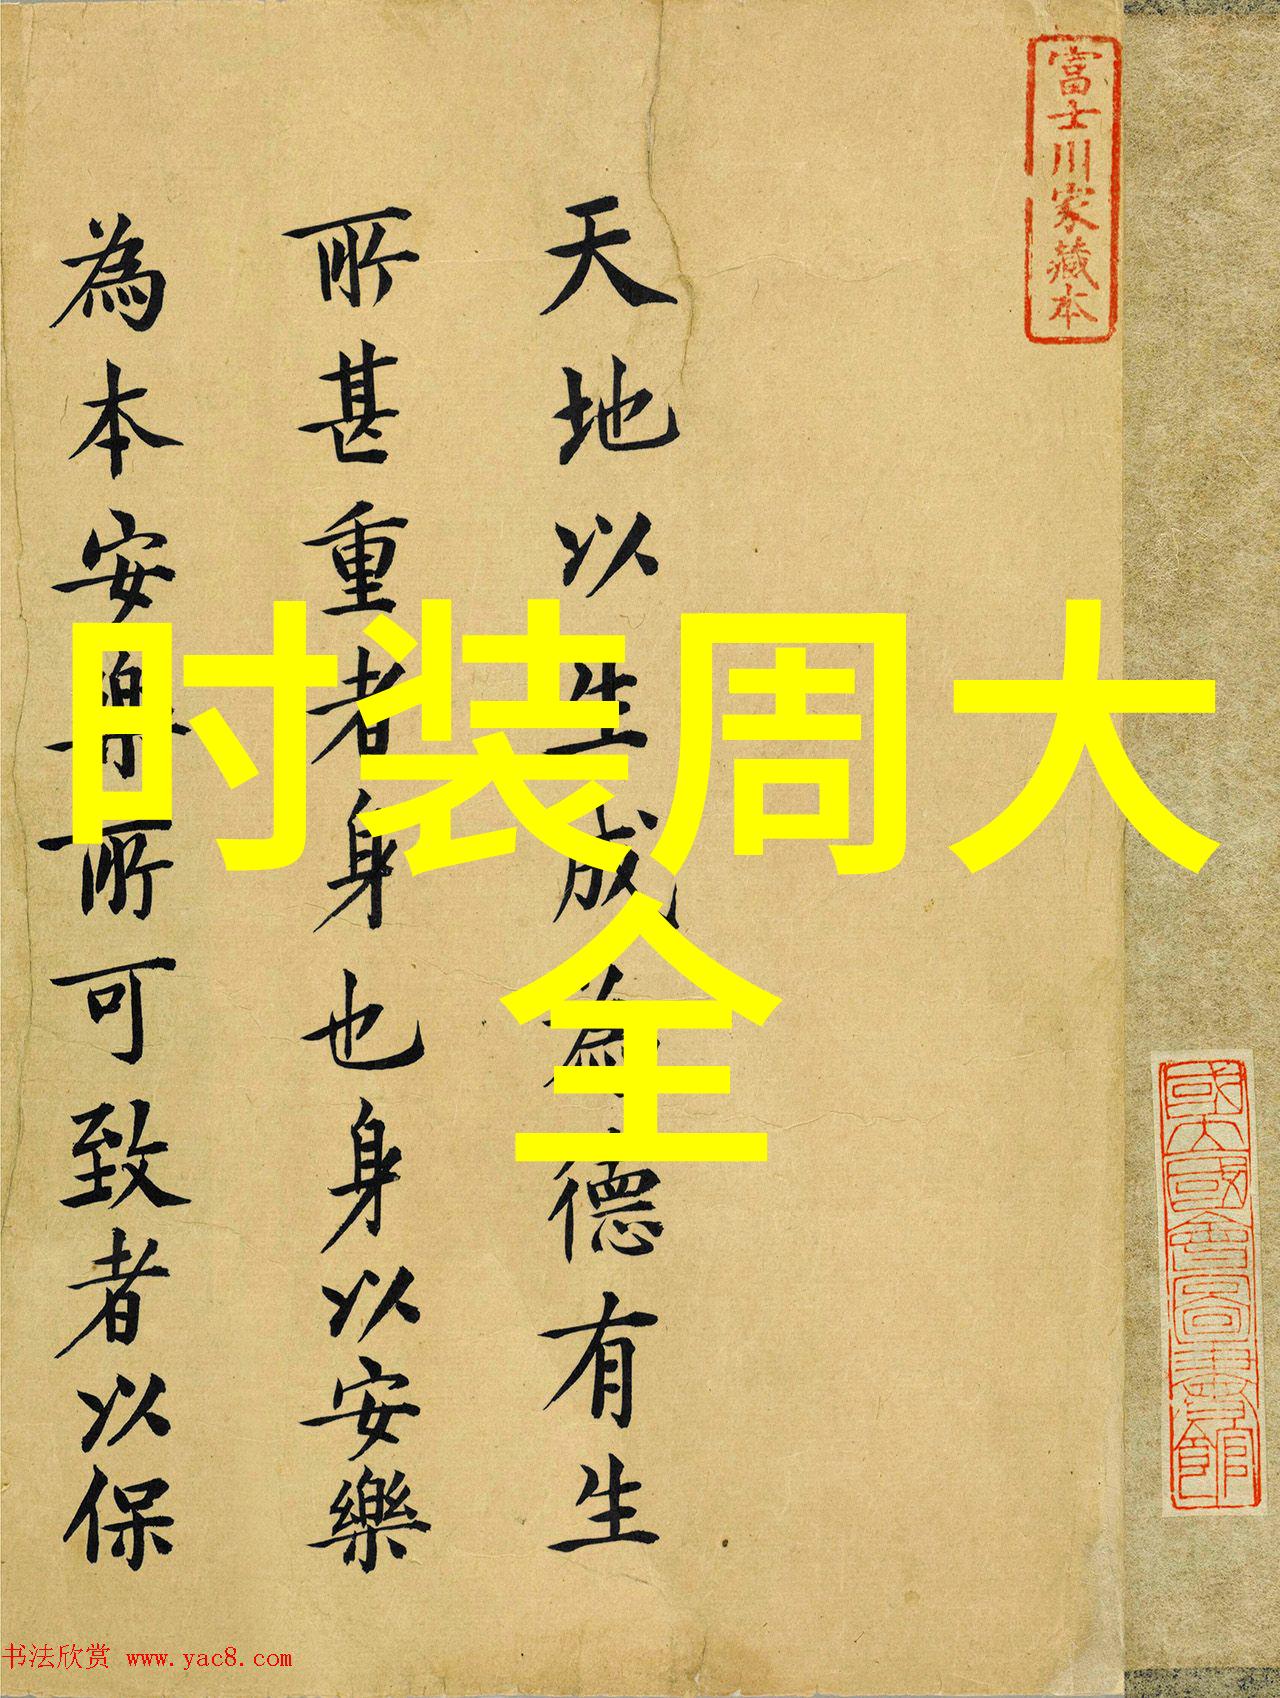 富士川家藏本
天地以生成為德有生
所甚重者身也身以安樂
為本安樂所可致者以保
时装周大
全
國立國會圖書館
书法欣赏 www.yac8.com